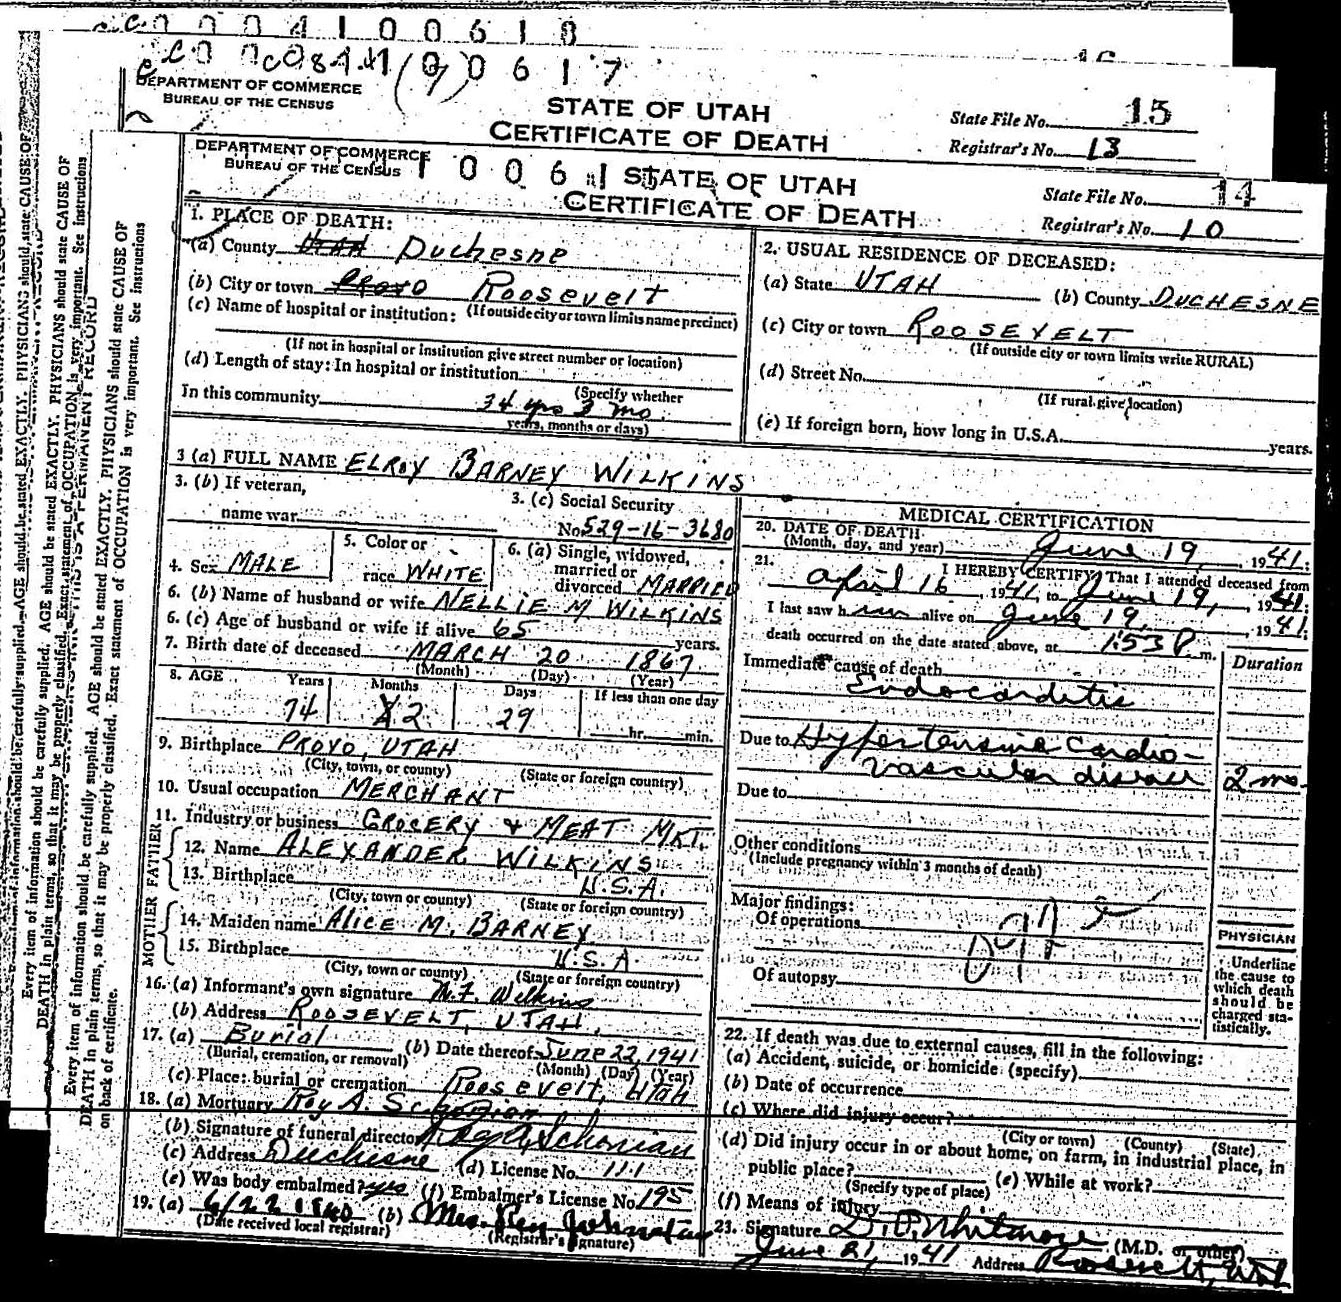 0 0 0 4 1 0 0 6 1 8
16
0 0 6 1 7
DEPARTMENT OF COMMERCE
BUREAU OF THE CENSUS
STATE OF UTAH
CERTIFICATE OF DEATH
State File No. 15
Registrar's No. 13
DEPARTMENT OF COMMERCE
BUREAU OF THE CENSUS
1 0 0 6 1
STATE OF UTAH
CERTIFICATE OF DEATH
State File No. 14
Registrar's No. 10
1. PLACE OF DEATH:
(a) County UTAH Duchesne
(b) City or town PROVO Roosevelt
(c) Name of hospital or institution: (If outside city or town limits name precinct)
(If not in hospital or institution give street number or location)
(d) Length of stay: In hospital or institution
(Specify whether
In this community 34 yrs 3 mo.
years, months or days)
2. USUAL RESIDENCE OF DECEASED:
(a) State UTAH (b) County DUCHESNE
(c) City or town ROOSEVELT
(If outside city or town limits write RURAL)
(d) Street No.
(If rural give location)
(e) If foreign born, how long in U.S.A. years.
3 (a) FULL NAME ELROY BARNEY WILKINS
3. (b) If veteran,
name war
3. (c) Social Security
No. 529-16-3680
4. Sex MALE
5. Color or
race WHITE
6. (a) Single, widowed,
married or
divorced MARRIED
6. (b) Name of husband or wife NELLIE M WILKINS
6. (c) Age of husband or wife if alive 65 years.
7. Birth date of deceased MARCH 20 1867
(Month) (Day) (Year)
8. AGE Years Months Days If less than one day
74 2 29 hr. min.
9. Birthplace PROVO, UTAH
(City, town, or county) (State or foreign country)
10. Usual occupation MERCHANT
11. Industry or business GROCERY & MEAT MKT.
FATHER
12. Name ALEXANDER WILKINS
13. Birthplace U.S.A.
(City, town or county) (State or foreign country)
MOTHER
14. Maiden name ALICE M. BARNEY
15. Birthplace U.S.A.
(City, town or county) (State or foreign country)
16. (a) Informant's own signature Wilkins
(b) Address ROOSEVELT, UTAH.
17. (a) Burial (b) Date thereof June 22, 1941
(Burial, cremation, or removal) (Month) (Day) (Year)
(c) Place: burial or cremation Roosevelt, Utah
18. (a) Mortuary Roy A. Schonian
(b) Signature of funeral director Roy A Schonian
(c) Address Duchesne (d) License No. 111
(e) Was body embalmed? yes (f) Embalmer's License No. 195
19. (a) 6/22 1940 (b) Mrs. Johnston
(Date received local registrar) (Registrar's signature)
MEDICAL CERTIFICATION
20. DATE OF DEATH
(Month, day, and year) June 19, 1941.
21. I HEREBY CERTIFY, That I attended deceased from
April 16, 1941, to June 19, 1941.
I last saw him alive on June 19, 1941.
death occurred on the date stated above, at 1:53 P m.
Duration
Immediate cause of death
Endocarditis
Due to Hypertensive Cardio-
vascular disease 2 mo.
Due to
Other conditions
(Include pregnancy within 3 months of death)
Major findings:
Of operations
Of autopsy
PHYSICIAN
Underline
the cause to
which death
should be
charged sta-
tistically.
22. If death was due to external causes, fill in the following:
(a) Accident, suicide, or homicide (specify)
(b) Date of occurrence
(c) Where did injury occur?
(City or town) (County) (State)
(d) Did injury occur in or about home, on farm, in industrial place, in
public place? (e) While at work?
(Specify type of place)
(f) Means of injury
23. Signature D. P. Whitmore (M.D. or other)
June 21, 1941 Address Roosevelt, Utah
Every item of information should be carefully supplied. AGE should be stated EXACTLY. PHYSICIANS should state CAUSE OF
DEATH in plain terms, so that it may be properly classified. Exact statement of OCCUPATION is very important. See instructions
on back of certificate.